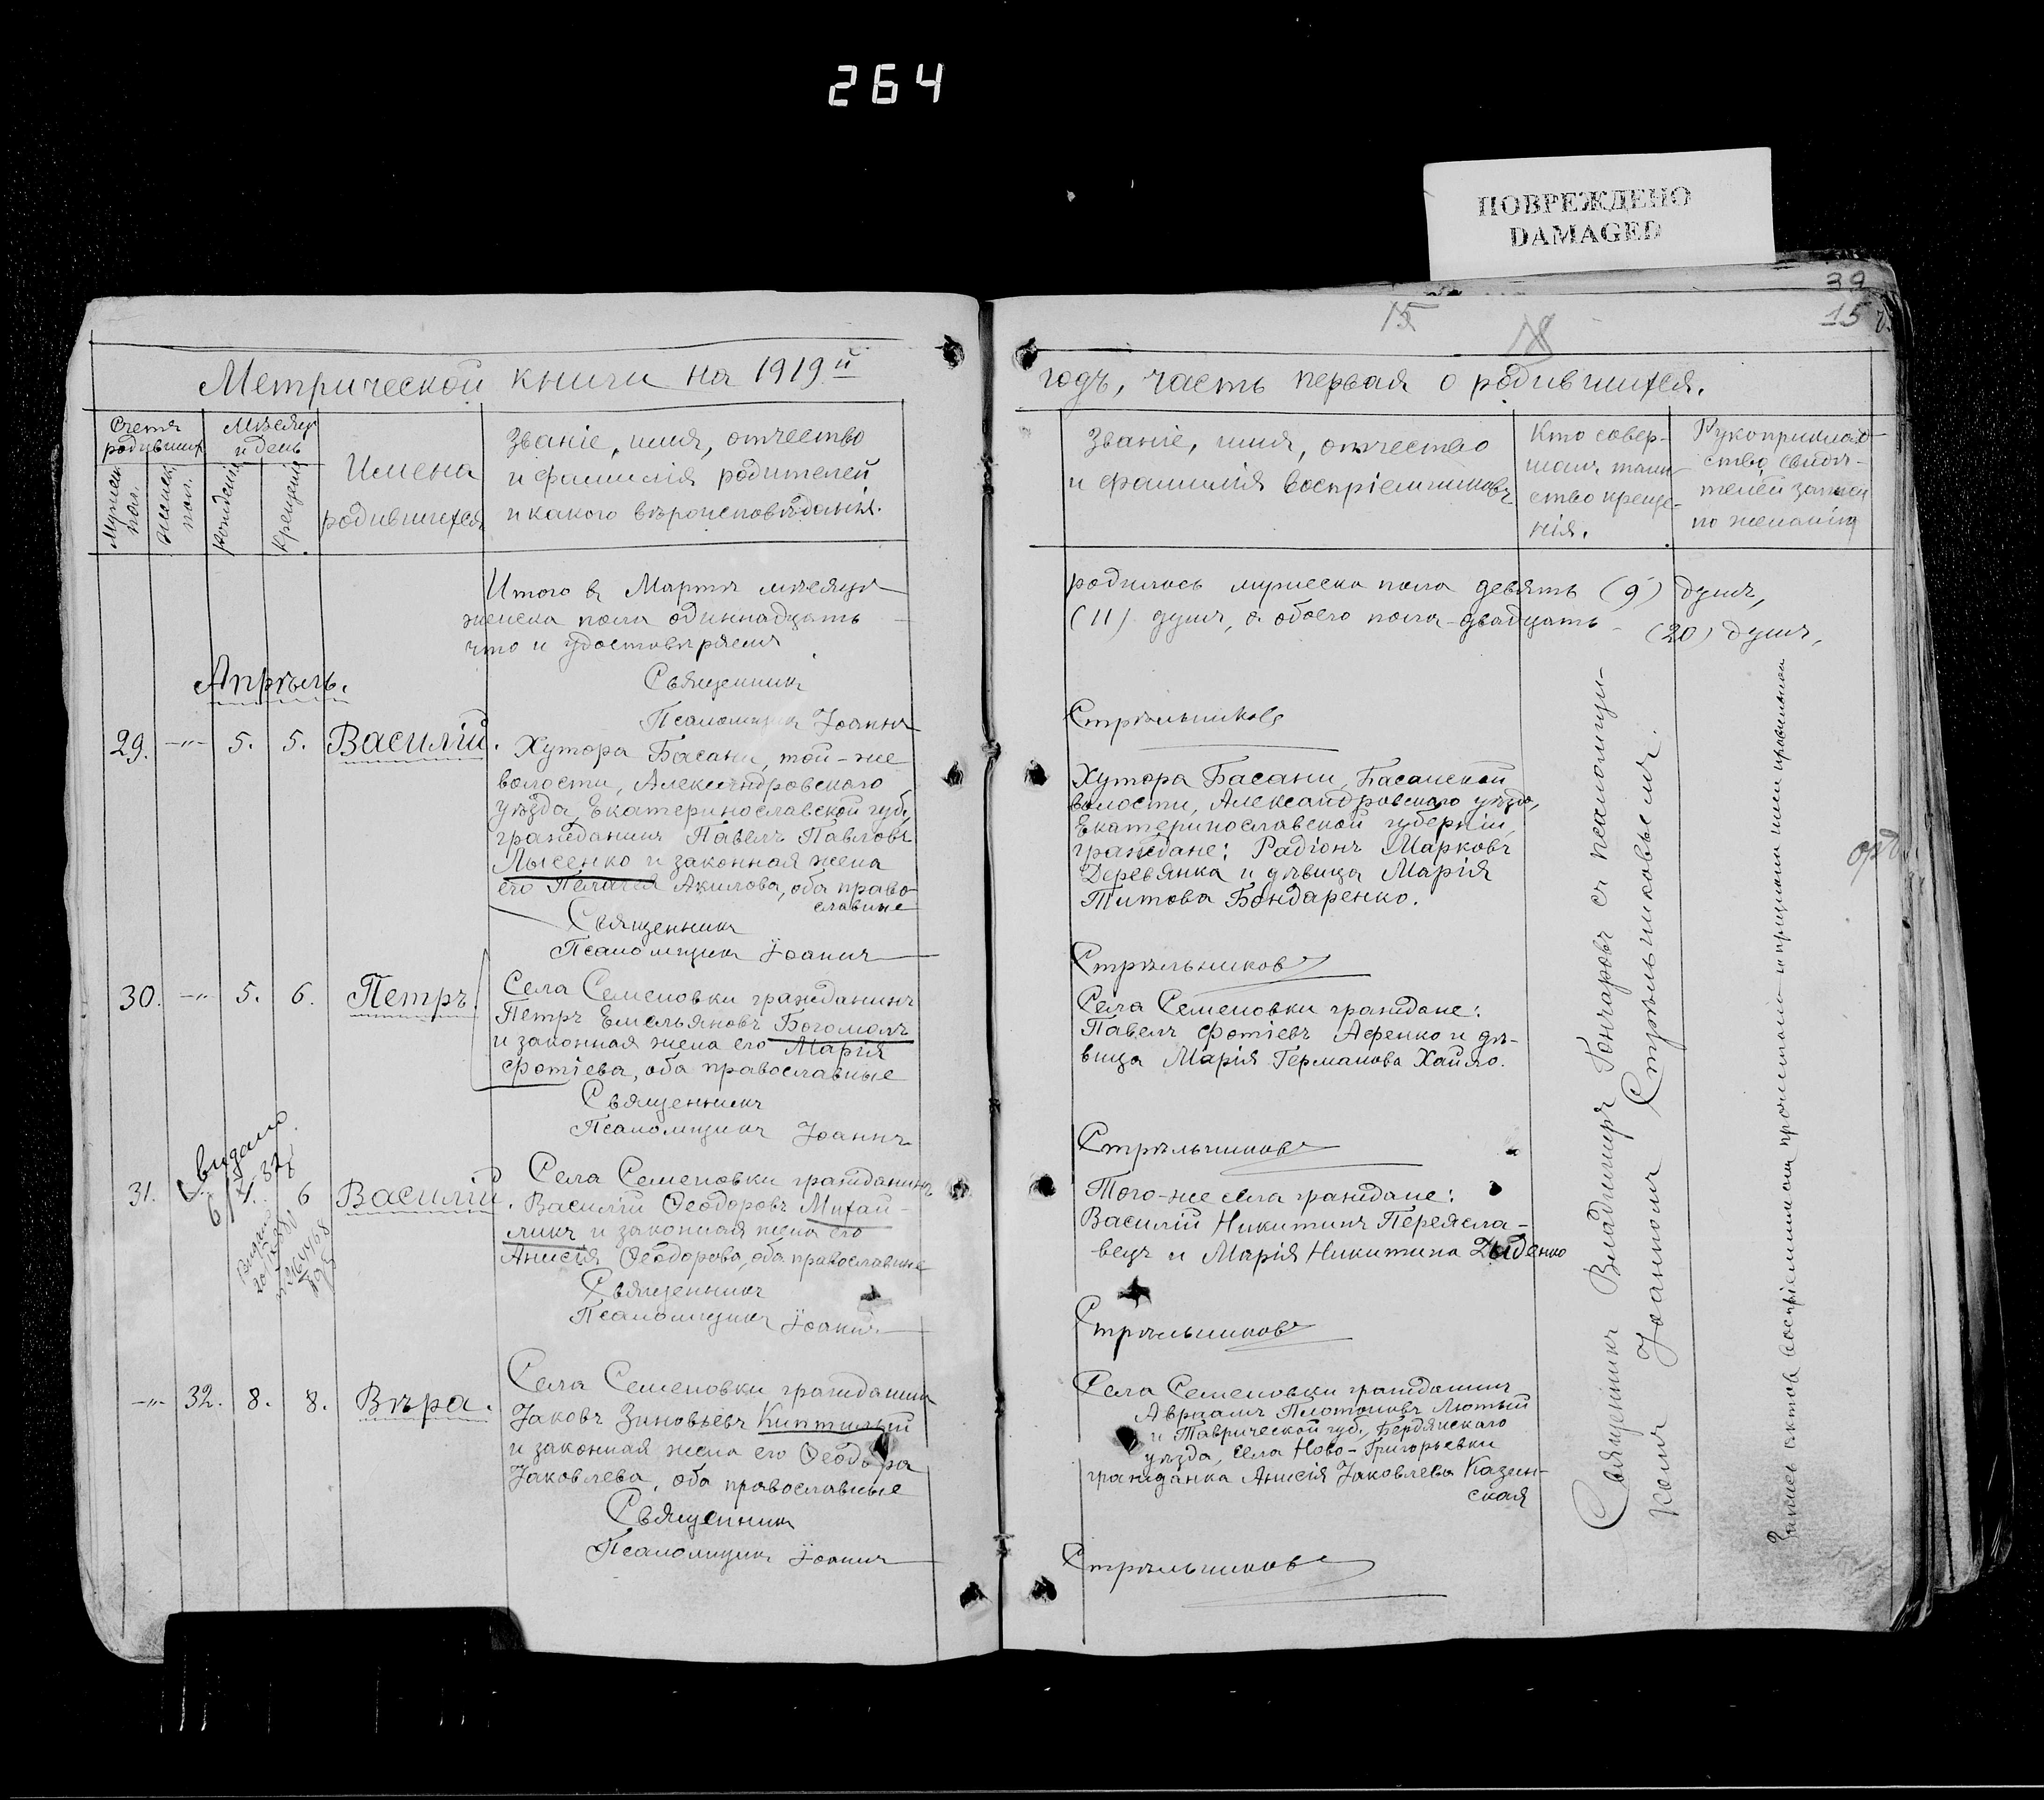 264
ПОВРЕЖДЕНО
DAMAGED
39
15
15
18
Метрической книги на 1919й
годъ, часть первая о родившихся.
Счетъ родивших.
Мѣсяцъ и день
Мужск. пол.
Женск. пол.
Рожденія
Крещенія
Имена
родившихся
Званіе, имя, отчество
и фамилія родителей
и какого вѣроисповѣданія.
Званіе, имя, отчество
и фамилія воспріемниковъ
Кто совер-
шалъ таин-
ство креще-
нія.
Рукоприклад-
ство свидѣ-
телей записи
по желанію
Итого въ Мартѣ мѣсяцѣ
женска пола одиннадцать
что и удостовѣряемъ
родилось мужеска пола девять (9) душъ,
(11) душъ, а обоего пола двадцать (20) душъ,
Священникъ
Псаломщикъ Іоаннъ
Стрѣльниковъ
Апрѣль.
29. -"- 5. 5. Василій.
Хутора Басани, той-же
волости, Александровскаго
уѣзда, Екатеринославской губ.
гражданинъ Павелъ Павловъ
Лысенко и законная жена
его Пелагея Акилова, оба право-
славные
Священникъ
Псаломщикъ Іоаннъ
Хутора Басани, Басанской
волости, Александровскаго уѣзда,
Екатеринославской губерніи,
граждане: Радіонъ Марковъ
Деревянка и дѣвица Марія
Титова Бондаренко.
Стрѣльниковъ
30. -"- 5. 6. Петръ.
Села Семеновки гражданинъ
Петръ Емельяновъ Богомолъ
и законная жена его Марія
Фотіева, оба православные
Священникъ
Псаломщикъ Іоаннъ
Села Семеновки граждане:
Павелъ Фотіевъ Афенко и дѣ-
вица Марія Германова Хайло.
Стрѣльниковъ
31. 6 Василій.
Села Семеновки гражданинъ
Василій Ѳеодоровъ Михай-
ликъ и законная жена его
Анисія Ѳеодорова, оба православные
Священникъ
Псаломщикъ Іоаннъ
Того-же села граждане:
Василій Никитинъ Переясла-
вецъ и Марія Никитина Дыденко
Стрѣльниковъ
-"- 32. 8. 8. Вѣра.
Села Семеновки гражданинъ
Іаковъ Зиновьевъ Киптилый
и законная жена его Ѳеодора
Іаковлева, оба православные
Священникъ
Псаломщикъ Іоаннъ
Села Семеновки гражданинъ
Авраамъ Платоновъ Лютый
и Таврической губ., Бердянскаго
уѣзда, села Ново-Григорьевки
гражданка Анисія Іаковлева Казин-
ская
Стрѣльниковъ
Священникъ Владимиръ Гончаровъ съ псаломщи-
комъ Іоанномъ Стрѣльниковымъ.